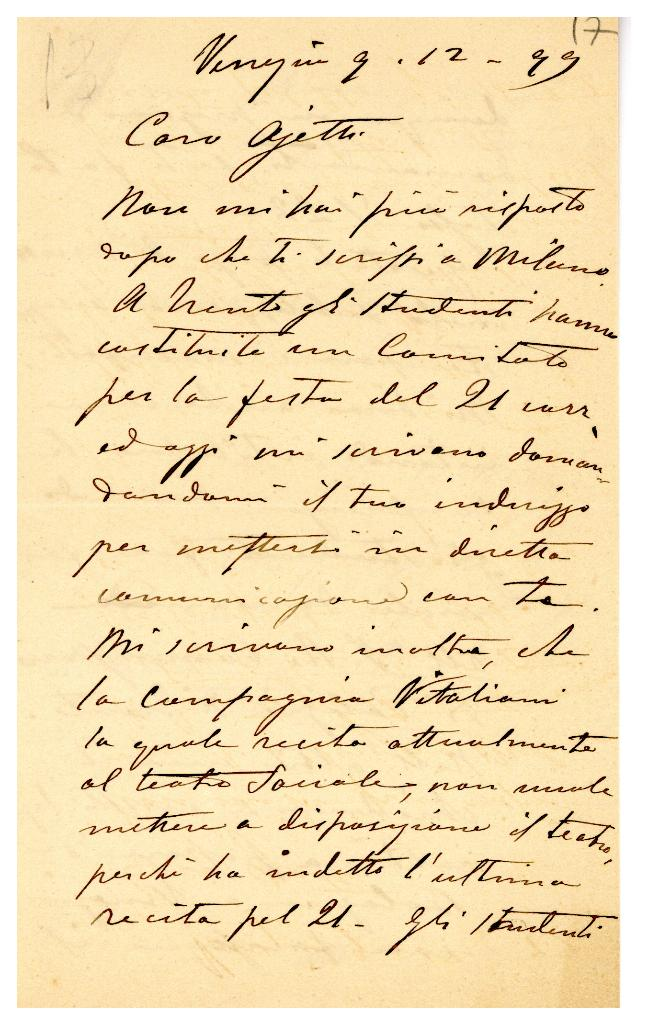 17
13
Venezia 9 . 12 - 99
Caro Ojetti
Non mi hai più risposto
dopo che ti scrissi a Milano.
A Trento gli studenti hanno
costituito un Comitato
per la festa del 21 corr.
ed oggi mi scrivono doman-
dandomi il tuo indirizzo
per mettersi in diretta
comunicazione con te.
Mi scrivono inoltre, che
la compagnia Vitaliani
la quale recita attualmente
al teatro Sociale, non vuole
mettere a disposizione il teatro,
perché ha indetto l'ultima
recita pel 21 - Gli studenti